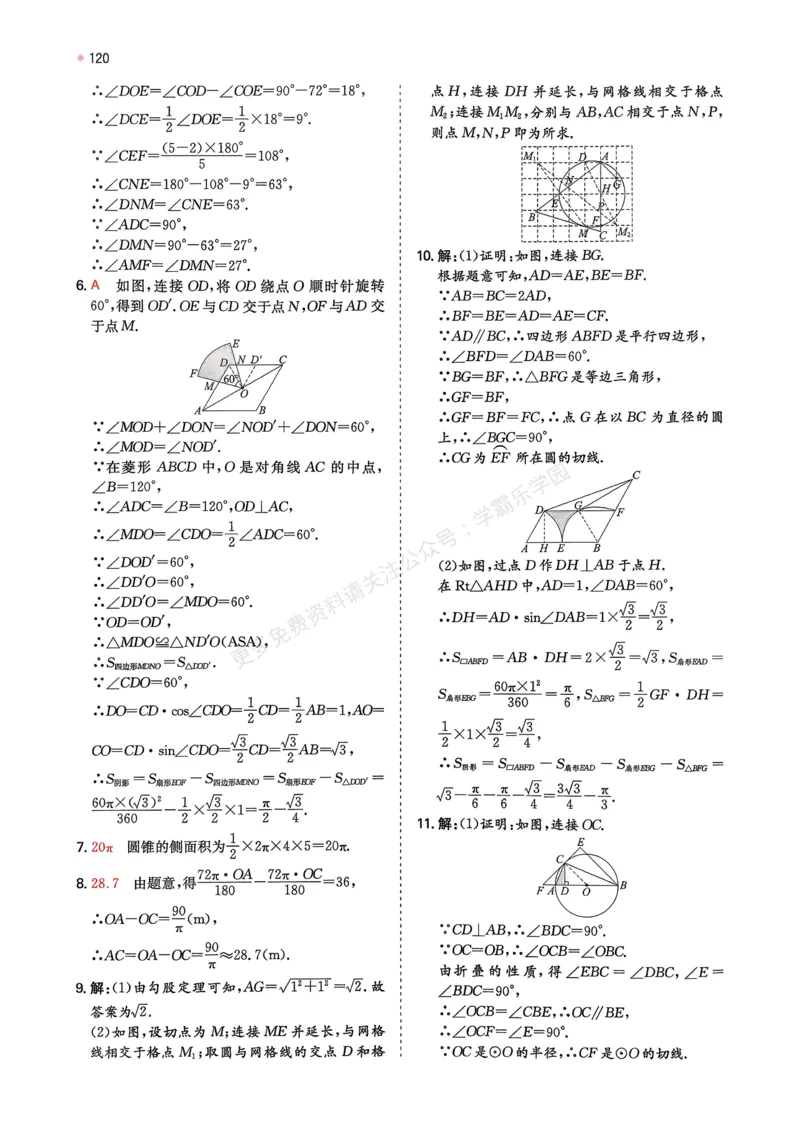 120
∴∠DOE=∠COD-∠COE=90°-72°=18°,
∴∠DCE=1/2∠DOE=1/2×18°=9°.
∵∠CEF=(5-2)×180°/5=108°,
∴∠CNE=180°-108°-9°=63°,
∴∠DNM=∠CNE=63°.
∵∠ADC=90°,
∴∠DMN=90°-63°=27°,
∴∠AMF=∠DMN=27°.
6. A 如图,连接 OD,将 OD 绕点 O 顺时针旋转
60°,得到 OD′.OE 与 CD 交于点 N,OF 与 AD 交
于点 M.
E
D N D′ C
F
M 60°
O
A B
∵∠MOD+∠DON=∠NOD′+∠DON=60°,
∴∠MOD=∠NOD′.
∵在菱形 ABCD 中,O 是对角线 AC 的中点,
∠B=120°,
∴∠ADC=∠B=120°,OD⊥AC,
∴∠MDO=∠CDO=1/2∠ADC=60°.
∵∠DOD′=60°,
∴∠DD′O=60°,
∴∠DD′O=∠MDO=60°.
∵OD=OD′,
∴△MDO≌△ND′O(ASA),
∴S四边形MDNO=S△DOD′.
∵∠CDO=60°,
∴DO=CD·cos∠CDO=1/2CD=1/2AB=1,AO=
CO=CD·sin∠CDO=√3/2CD=√3/2AB=√3,
∴S阴影=S扇形EOF-S四边形MDNO=S扇形EOF-S△DOD′=
60π×(√3)²/360-1/2×√3/2×1=π/2-√3/4.
7. 20π 圆锥的侧面积为1/2×2π×4×5=20π.
8. 28.7 由题意,得72π·OA/180-72π·OC/180=36,
∴OA-OC=90/π(m),
∴AC=OA-OC=90/π≈28.7(m).
9. 解:(1)由勾股定理可知,AG=√1²+1²=√2.故
答案为√2.
(2)如图,设切点为 M;连接 ME 并延长,与网格
线相交于格点 M₁;取圆与网格线的交点 D 和格
点 H,连接 DH 并延长,与网格线相交于格点
M₂;连接 M₁M₂,分别与 AB,AC 相交于点 N,P,
则点 M,N,P 即为所求.
M₁ D A
N H G
E P
B F
M C M₂
10. 解:(1)证明:如图,连接 BG.
根据题意可知,AD=AE,BE=BF.
∵AB=BC=2AD,
∴BF=BE=AD=AE=CF.
∵AD∥BC,∴四边形 ABFD 是平行四边形,
∴∠BFD=∠DAB=60°.
∵BG=BF,∴△BFG 是等边三角形,
∴GF=BF,
∴GF=BF=FC,∴点 G 在以 BC 为直径的圆
上,∴∠BGC=90°,
∴CG 为 EF⌒ 所在圆的切线.
C
D G F
A H E B
(2)如图,过点 D 作 DH⊥AB 于点 H.
在 Rt△AHD 中,AD=1,∠DAB=60°,
∴DH=AD·sin∠DAB=1×√3/2=√3/2,
∴S▱ABFD=AB·DH=2×√3/2=√3,S扇形EAD=
S扇形EBG=60π×1²/360=π/6,S△BFG=1/2GF·DH=
1/2×1×√3/2=√3/4,
∴S阴影=S▱ABFD-S扇形EAD-S扇形EBG-S△BFG=
√3-π/6-π/6-√3/4=3√3/4-π/3.
11. 解:(1)证明:如图,连接 OC.
E
C
F A D O B
∵CD⊥AB,∴∠BDC=90°.
∵OC=OB,∴∠OCB=∠OBC.
由折叠的性质,得∠EBC=∠DBC,∠E=
∠BDC=90°,
∴∠OCB=∠CBE,∴OC∥BE,
∴∠OCF=∠E=90°.
∵OC 是⊙O 的半径,∴CF 是⊙O 的切线.
更多免费资料请关注公众号:学霸乐学园